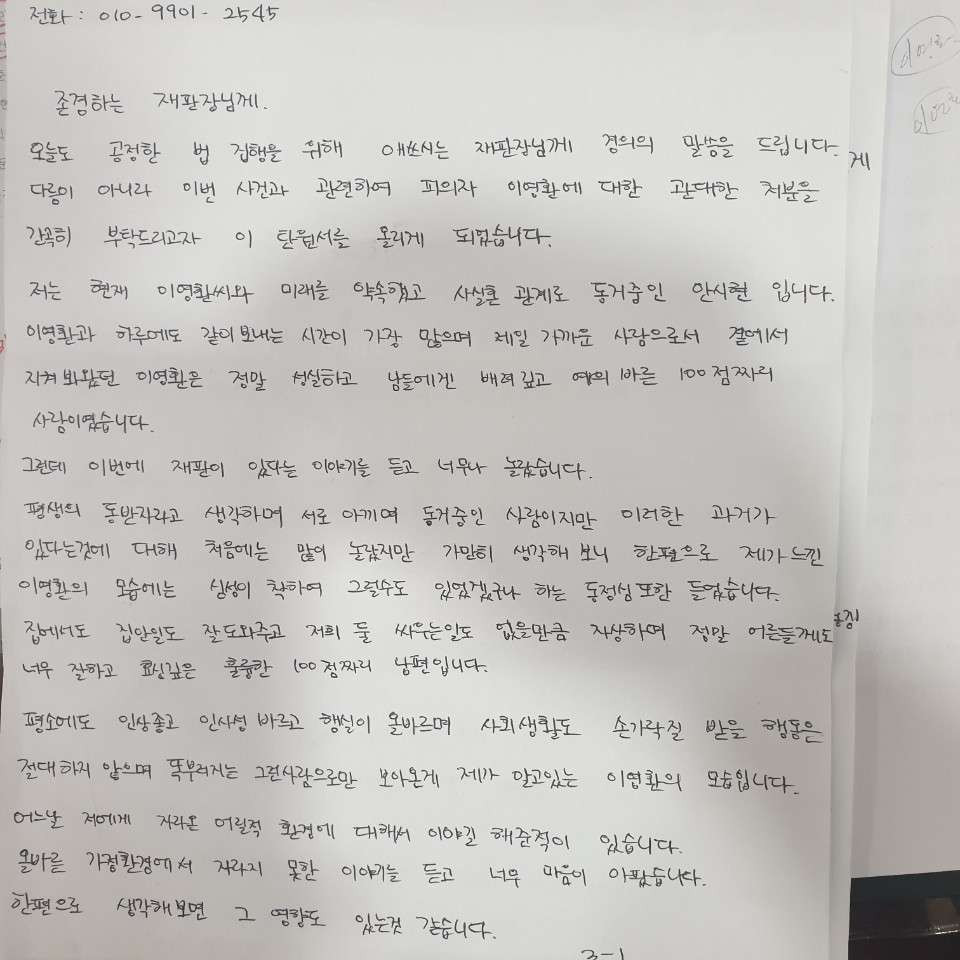 전화 : 010-9901-2545
존경하는 재판장님께.
오늘도 공정한 법 집행을 위해 애쓰시는 재판장님께 경의의 말씀을 드립니다.
다름이 아니라 이번 사건과 관련하여 피의자 이영환에 대한 관대한 처분을
간속히 부탁드리고자 이 탄원서를 올리게 되었습니다.
저는 현재 이영환씨와 미래를 약속했고 사실혼 관계로 동거중인 안시현 입니다.
이영환과 하루에도 같이 보내는 시간이 가장 많으며 제일 가까운 사람으로서 곁에서
지켜 봐왔던 이영환은 정말 성실하고 남들에겐 배려 깊고 예의 바른 100점짜리
사람이였습니다.
그런데 이번에 재판이 있다는 이야기를 듣고 너무나 놀랐습니다.
평생의 동반자라고 생각하며 서로 아끼며 동거중인 사람이지만 이러한 과거가
있다는것에 대해 처음에는 많이 놀랐지만 가만히 생각해 보니 한편으로 제가 느낀
이영환의 모습에는 심성이 착하여 그럴수도 있었겠구나 하는 동정심 또한 들었습니다.
집에서도 집안일도 잘 도와주고 저희 둘 싸우는일도 없을만큼 자상하며 정말 어른들께도
너무 잘하고 효심깊은 훌륭한 100점짜리 남편입니다.
평소에도 인상좋고 인사성 바르고 행실이 올바르며 사회생활도 손가락질 받을 행동은
절대 하지 않으며 똑부러지는 그런사람으로만 보아온게 제가 알고있는 이영환의 모습입니다.
어느날 저에게 자라온 어릴적 환경에 대해서 이야길 해준적이 있습니다.
올바른 가정환경에서 자라지 못한 이야기를 듣고 너무 마음이 아팠습니다.
한편으로 생각해보면 그 영향도 있는것 같습니다.
3-1